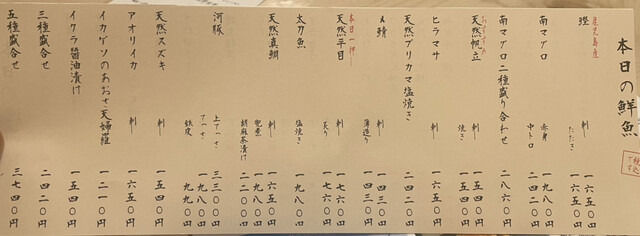 本日の鮮魚
税込です
鹿児島産
鰹 刺し 一六五〇円
たたき 一六五〇円
南マグロ 赤身 一九八〇円
中トロ 二四二〇円
南マグロ二種盛り合わせ 二八六〇円
天然帆立 刺し 一五四〇円
焼き 一五四〇円
ヒラマサ 刺し 一六五〇円
天然ブリカマ塩焼き 二四二〇円
〆鯖 刺し 一四三〇円
薄造り 一四三〇円
本日一押し
天然平目 刺し 一七六〇円
炙り 一七六〇円
太刀魚 塩焼き 一九八〇円
天然真鯛 刺し 一六五〇円
兜煮 一九八〇円
胡麻茶漬け 二二〇〇円
河豚 上てっさ 三三〇〇円
てっさ 一九八〇円
鉄皮 九九〇円
天然スズキ 刺し 一五四〇円
アオリイカ 刺し 一六五〇円
イカゲソのあおさ天婦羅 一二一〇円
イクラ醤油漬け 一五四〇円
三種盛合せ 二四二〇円
五種盛合せ 三七四〇円